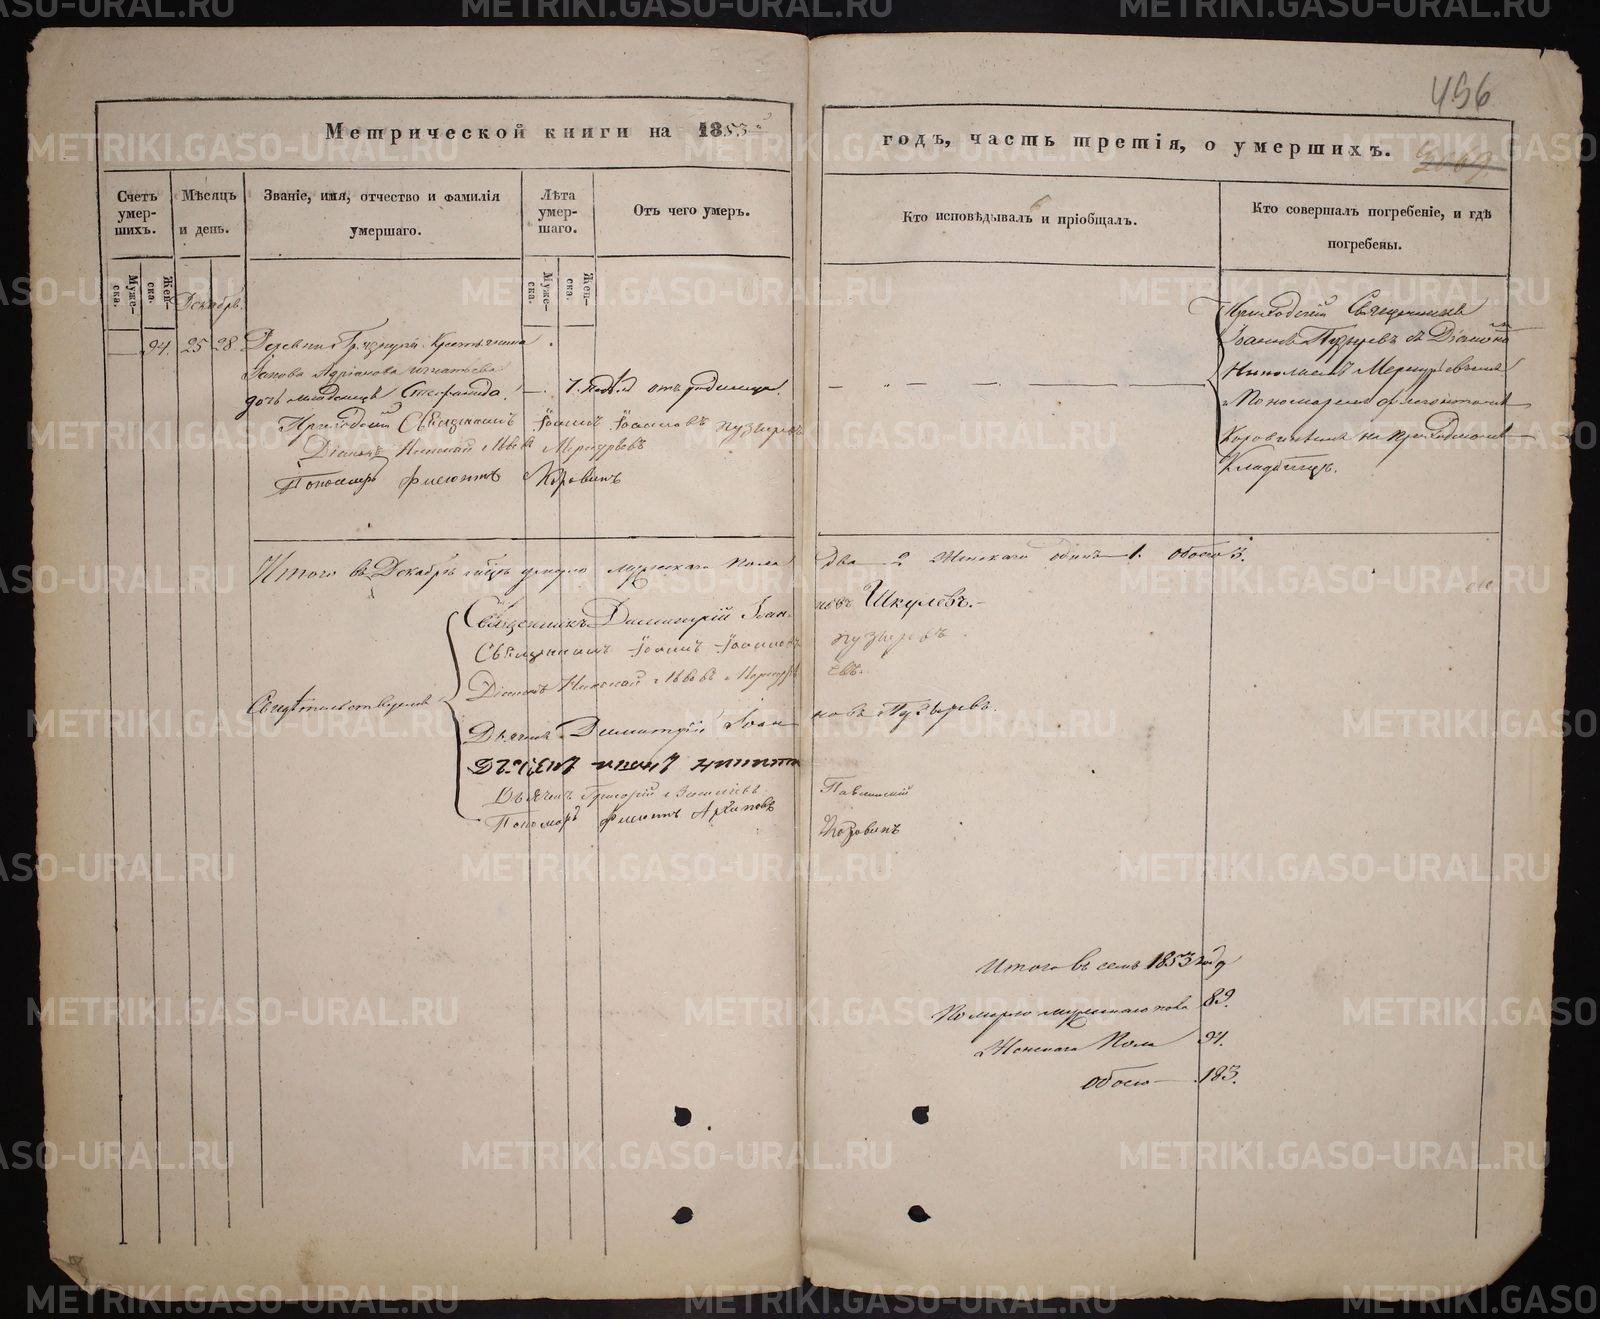 496
Метрической книги на 1853й
годъ, часть третія, о умершихъ.
Счетъ умер-шихъ.
Мѣсяцъ и день.
Званіе, имя, отчество и фамилія умершаго.
Лѣта умер-шаго.
Отъ чего умеръ.
Кто исповѣдывалъ и пріобщалъ.
Кто совершалъ погребеніе, и гдѣ погребены.
Муже-ска.
Жен-ска.
Муже-ска.
Жен-ска.
Декабрь.
94. 25 28 Деревни Крестьянина
Іакова Адріанова Игнатьева
дочь младенецъ Стефанида. 1. нед. отъ родимца.
Приходскій Священникъ Іоаннъ Іоанновъ Пузыревъ
Діаконъ Николай Львовъ Меркурьевъ
Пономарь Филиппъ Коровинъ
Приходскій Священникъ
Іоаннъ Пузыревъ съ Діакономъ
Николаемъ Меркурьевымъ
и Пономаремъ
Коровинымъ на приходскомъ
Кладбищѣ.
Итого въ Декабрѣ мѣсяцѣ умерло мужескаго пола два 2 Женскаго одинъ 1. обоего 3.
Свидѣтельствовали
Священникъ Димитрій Іоанновъ Шкулевъ.
Священникъ Іоаннъ Іоанновъ Пузыревъ
Діаконъ Николай Львовъ Меркурьевъ.
Дьячекъ Димитрій Іоанновъ Пузыревъ.
Дьячекъ Григорій Васильевъ Павлинскій
Пономарь Филиппъ Архиповъ Коровинъ
Итого въ семъ 1853 году
Померло мужескаго пола 89.
Женскаго Пола 94.
обоего 183.
METRIKI.GASO-URAL.RU